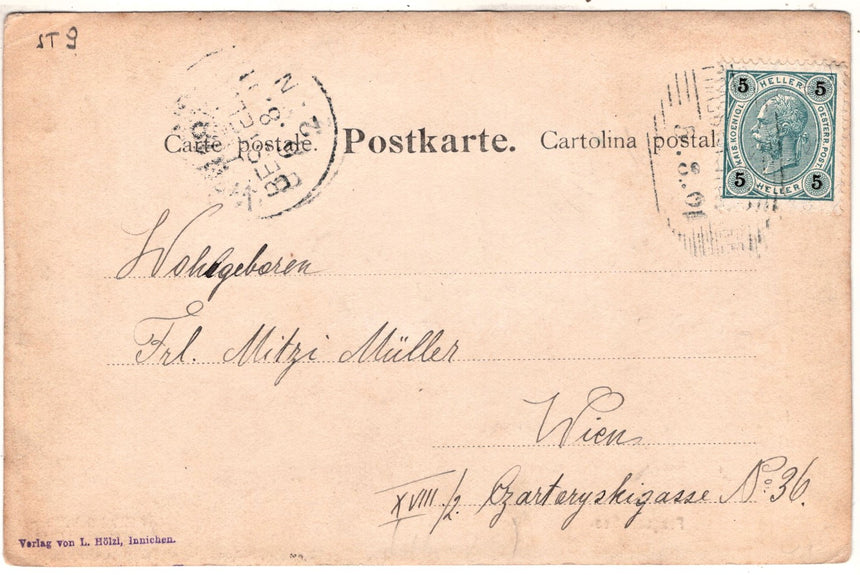 Carte postale. Postkarte. Cartolina postal
5 HELLER 5
KAIS. KOENIGL.
OESTERR. POST
5 HELLER 5
8. 8. 01
BESTELLT
Wohlgeboren
Frl. Mitzi Müller
Wien
XVIII/2. Czartoryskigasse No. 36.
Verlag von L. Hölzl, Innichen.